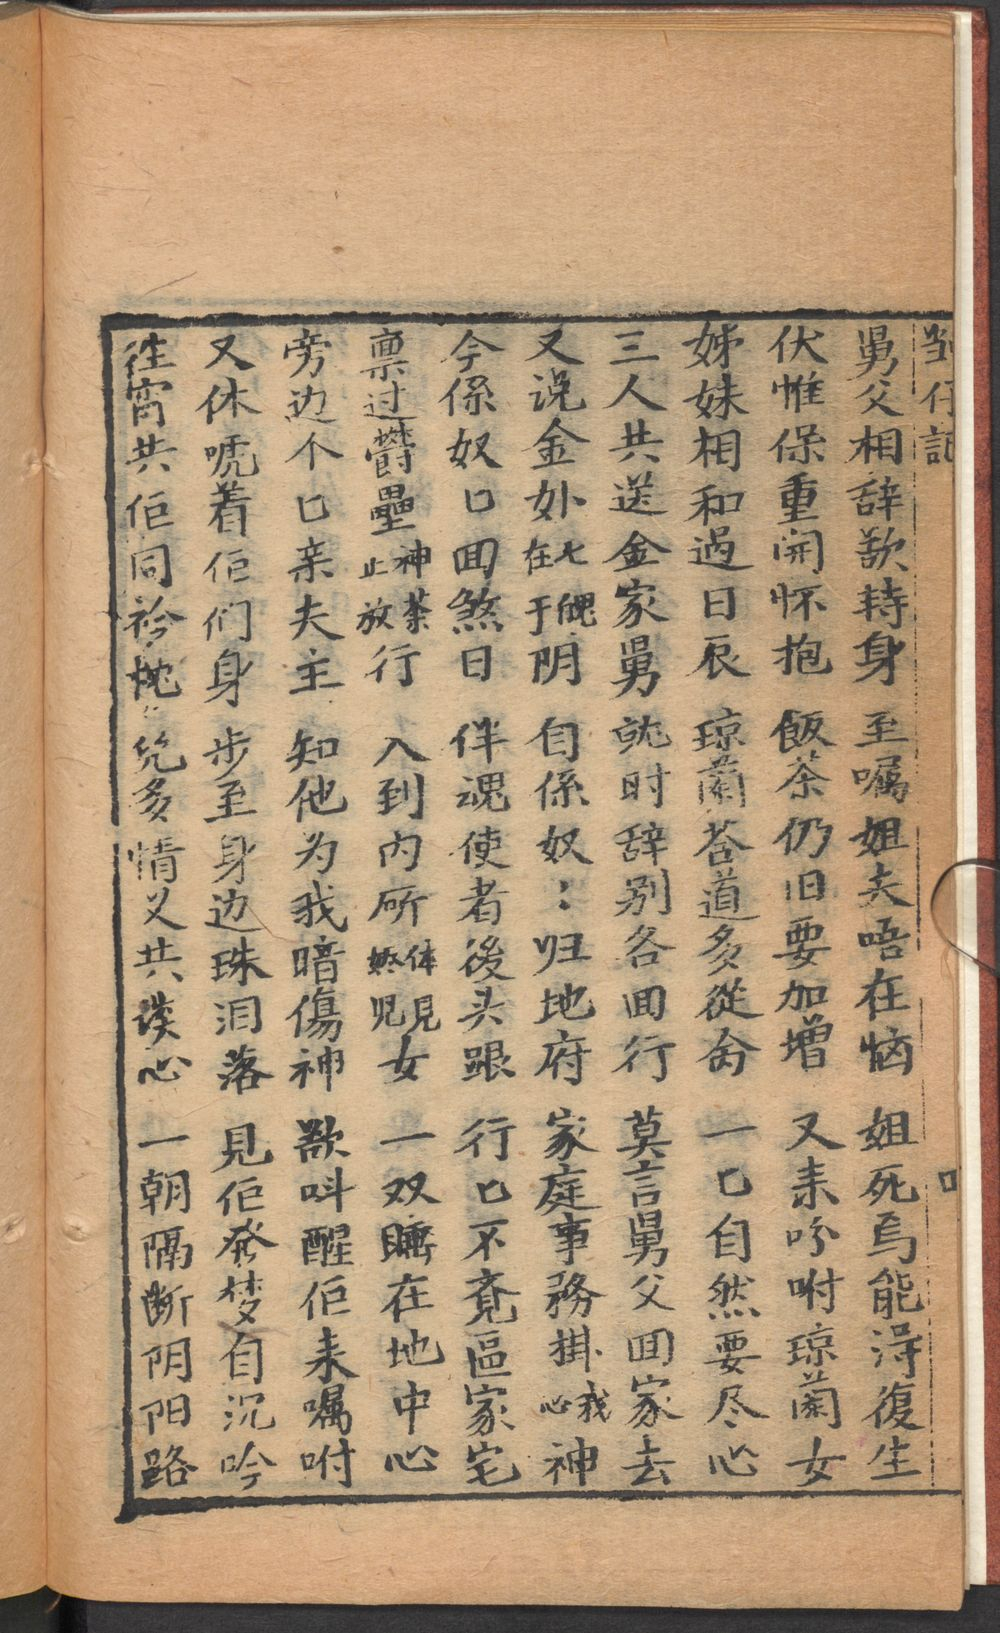 舅父相辞欲转身 至嘱姐夫唔在恼 姐死焉能淂復生
伏惟保重開怀抱 飯茶仍旧要加增 又来吩咐琼蘭女
姊妹相和過日辰 琼蘭荅道多從命 一匕自然要尽心
三人共送金家舅 就时辞别各囬行 莫言舅父囬家去
又说金外七魄在于阴 自係奴：归地府 家庭事務掛我心神
今係奴匕囬煞日 伴魂使者後头跟 行匕不竟區家宅
禀过欝壘神荼止放行 入到内所体見娇児女 一双睡在地中心
旁边个匕亲夫主 知他为我暗傷神 欲呌醒佢来嘱咐
又休唬着佢们身 步至身边珠泪落 見佢發梦自沉吟
往宵共佢同衿枕 几多情义共谈心 一朝隔断阴阳路